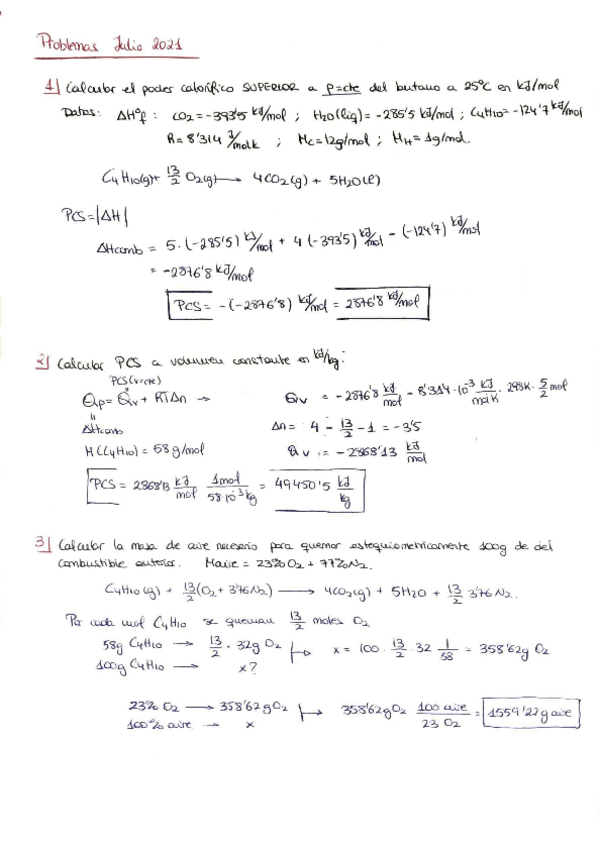 Problemas Julio 2021
1| Calcular el poder calorífico SUPERIOR a p=cte del butano a 25ºC en kJ/mol
Datos: ΔHºf : CO2 = -393'5 kJ/mol ; H2O(liq) = -285'5 kJ/mol ; C4H10 = -124'7 kJ/mol
R = 8'314 J/molK ; Mc = 12g/mol ; MH = 1g/mol.
C4H10(g) + 13/2 O2(g) → 4CO2(g) + 5H2O(l)
PCS = |ΔH|
ΔHcomb = 5·(-285'5) kJ/mol + 4(-393'5) kJ/mol - (-124'7) kJ/mol
= -2876'8 kJ/mol
PCS = -(-2876'8) kJ/mol = 2876'8 kJ/mol
2| Calcular PCS a volumen constante en kJ/kg:
PCS(v=cte)
Qp = Qv + RTΔn → Qv = -2876'8 kJ/mol - 8'314·10⁻³ kJ/molK · 298K · 5/2 mol
ΔHcomb Δn = 4 - 13/2 - 1 = -3'5
M(C4H10) = 58g/mol Qv = -2868'13 kJ/mol
PCS = 2868'13 kJ/mol · 1mol/58·10⁻³kg = 49450'5 kJ/kg
3| Calcular la masa de aire necesario para quemar estequiometricamente 100g de del
combustible anterior. Maire = 23%O2 + 77%N2.
C4H10(g) + 13/2(O2 + 3'76N2) → 4CO2(g) + 5H2O + 13/2 3'76N2.
Por cada mol C4H10 se queman 13/2 moles O2
58g C4H10 → 13/2 · 32g O2 x = 100 · 13/2 · 32 1/58 = 358'62g O2
100g C4H10 → x?
23% O2 → 358'62g O2 358'62g O2 100 aire/23 O2 = 1559'22g aire
100% aire → x